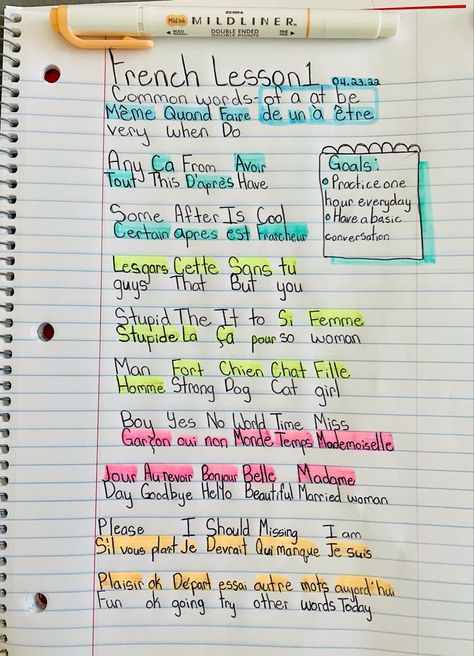 Mild ink MILDLINER ZEBRA DOUBLE ENDED
French Lesson 1 04.23.22
Common words- of a at be
Même Quand Faire de un à être
very when Do
Any Ça From Avoir
Tout This D'après Have
Goals:
Practice one
hour everyday
Have a basic
conversation
Some After Is Cool
Certain apres est Fraicheur
Les gars Cette Sans tu
guys That But you
Stupid The It to Si Femme
Stupide la Ça pour so woman
Man Fort Chien Chat Fille
Homme Strong Dog Cat girl
Boy Yes No World Time Miss
Garçon oui non Monde Temps Mademoiselle
Jour Au revoir Bonjour Belle Madame
Day Goodbye Hello Beautiful Married woman
Please I Should Missing I am
Sil vous plart Je Devrait Qui manque Je suis
Plaisir ok Départ essai autre mots aujord'hui
Fun ok going try other words Today